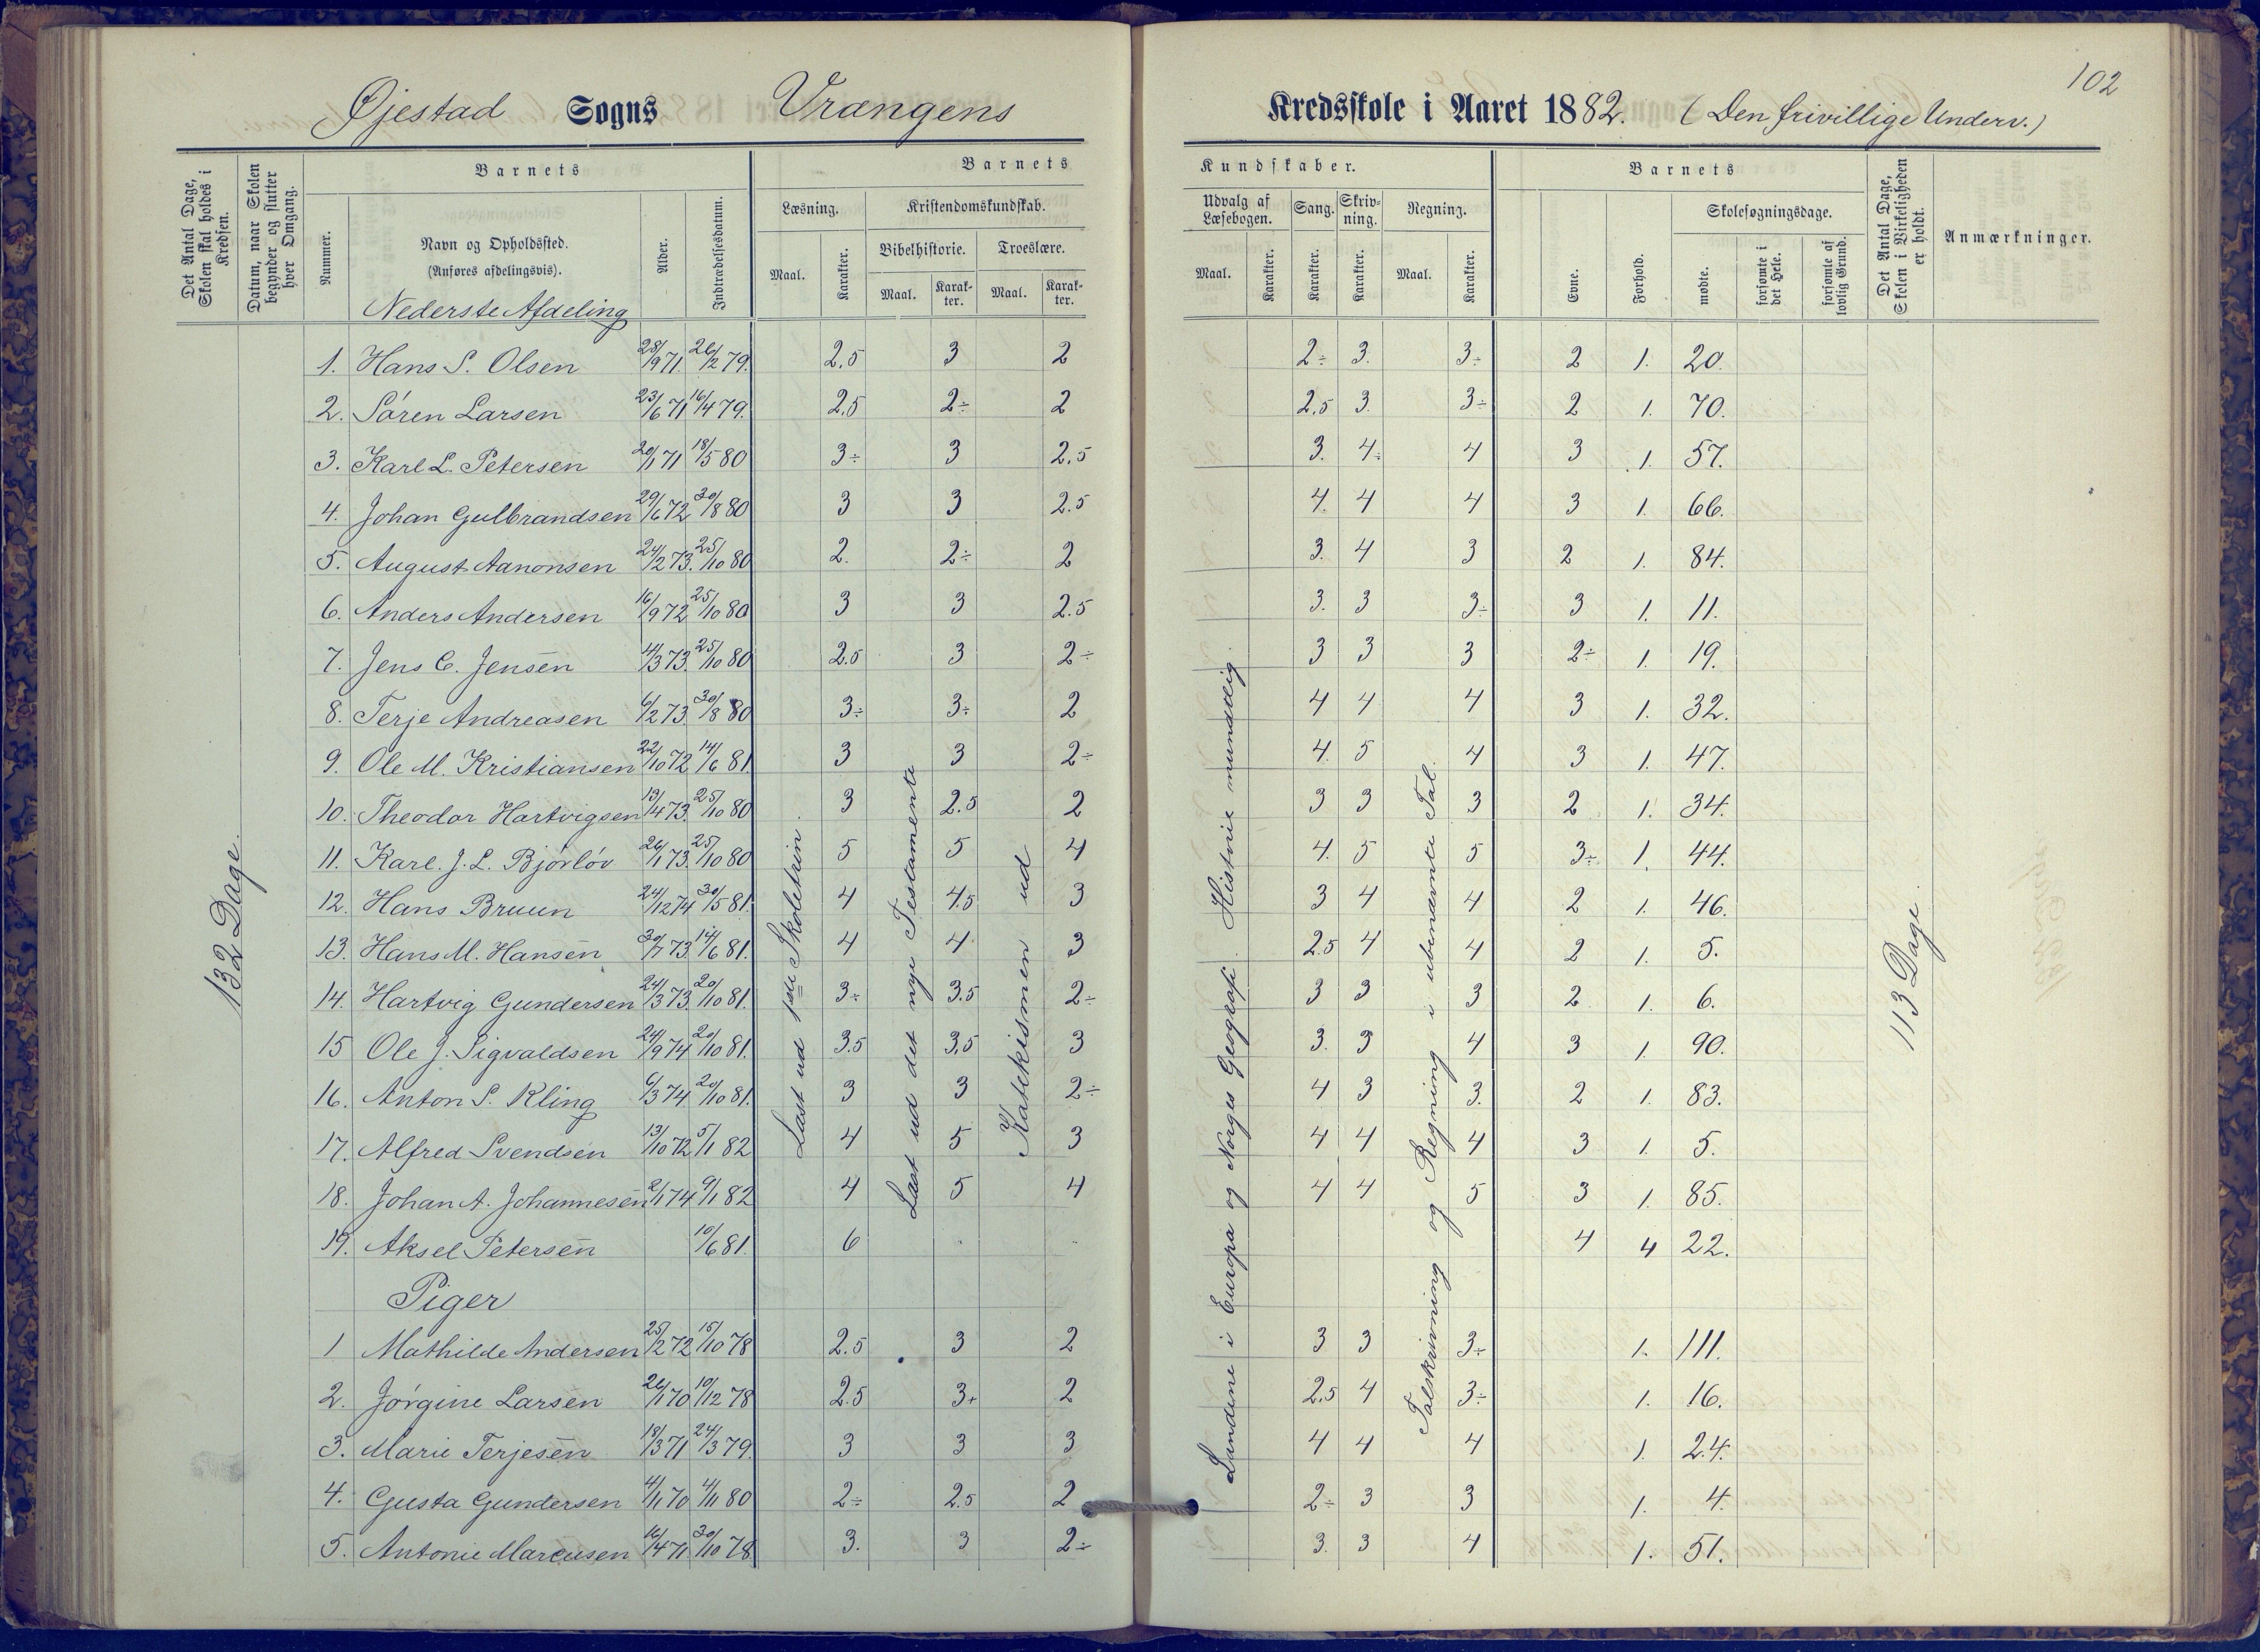 102
Øjestad Sogns Vrangens Kredsskole i Aaret 1882. (Den frivillige Underv.)
Det Antal Dage, Skolen skal holdes i Kredsen.
Datum, naar Skolen begynder og slutter hver Omgang.
Barnets
Nummer.
Navn og Opholdssted.
(Anføres afdelingsvis).
Alder.
Indtrædelsesdatum.
Barnets Kundskaber.
Læsning.
Maal.
Karakter.
Kristendomskundskab.
Bibelhistorie.
Maal.
Karakter.
Troeslære.
Maal.
Karakter.
Udvalg af Læsebogen.
Maal.
Karakter.
Sang.
Karakter.
Skrivning.
Karakter.
Regning.
Maal.
Karakter.
Barnets
Evne.
Forhold.
Skolesøgningsdage.
mødte.
forsømte i det Hele.
forsømte af lovlig Grund.
Det Antal Dage, Skolen i Virkeligheden er holdt.
Anmærkninger.
Nederste Afdeling
1. Hans S. Olsen 28/9 71. 26/2 79. 2,5 3 2 2÷ 3. 3÷ 2 1. 20.
2. Søren Larsen 23/6 71 16/4 79. 2,5 2÷ 2 2,5 3. 3÷ 2 1. 70.
3. Karl L. Petersen 20/1 71 18/5 80 3÷ 3 2,5 3. 4÷ 4 3 1. 57.
4. Johan Gulbrandsen 29/6 72 30/8 80 3 3 2.5 4. 4 4 3 1. 66.
5. August Aanonsen 24/2 73. 25/10 80 2. 2÷ 2 3. 4 3 2 1. 84.
6. Anders Andersen 16/9 72 25/10 80 3 3 2.5 3. 3 3÷ 3 1. 11.
7. Jens C. Jensen 4/3 73. 25/10 80 2.5 3 2÷ 3 3 3 2÷ 1. 19.
8. Terje Andreasen 6/2 73 30/8 80 3÷ 3÷ 2 4 4 4 3 1. 32.
9. Ole M. Kristiansen 22/10 72 14/6 81. 3 3 2÷ 4. 5 4 3 1. 47.
10. Theodor Hartvigsen 13/4 73. 25/10 80 3 2.5 2 3 3 3 2 1. 34.
11. Karl. J. L. Bjørløv 26/1 73. 25/10 80 5 5 4 4. 5 5 3÷ 1. 44.
12. Hans Bruun 24/12 74 30/5 81. 4 4.5 3 3 4 4 2 1. 46.
13. Hans M. Hansen 30/7 73. 14/6 81. 4 4. 3 2.5 4 4 2 1. 5.
14. Hartvig Gundersen 24/3 73. 20/10 81. 3÷ 3.5 2÷ 3 3 3 2 1. 6.
15 Ole J. Sigvaldsen 24/9 74 20/10 81. 3.5 3,5 3 3. 3 4 3 1. 90.
16. Anton S. Kling 6/3 74 20/10 81. 3 3 2÷ 4 3 3. 2 1. 83.
17. Alfred Svendsen 13/10 72 5/1 82 4 5 3 4 4 4 3 1. 5.
18. Johan A. Johannesen 2/1 74 9/1 82 4 5 4 4 4 5 3 1. 85.
19. Aksel Petersen 10/6 81. 6 4 4 22.
Piger
1 Mathilde Andersen 25/2 72 15/10 78 2.5 3 2 3 3 3÷ 1. 111.
2. Jørgine Larsen 26/1 70 10/12 78 2.5 3+ 2 2,5 4 3÷ 1. 16.
3. Marie Terjesen 18/3 71 24/3 79. 3 3 3 4 4 4 1. 24.
4. Gusta Gundersen 4/1 70 4/11 80 2÷ 2.5 2 2÷ 3 3 1. 4.
5. Antonie Marcusen 16/4 71. 30/10 78. 3. 3 2÷ 3. 3 4 1. 51.
132 Dage
Læst ud 1ste Skoletrin.
Læst ud det nye Testamente
Katekismen ud
Landene i Europa og Norges Geografi. Historie mundtlig.
Talskrivning og Regning i ubenævnte Tal.
113 Dage.